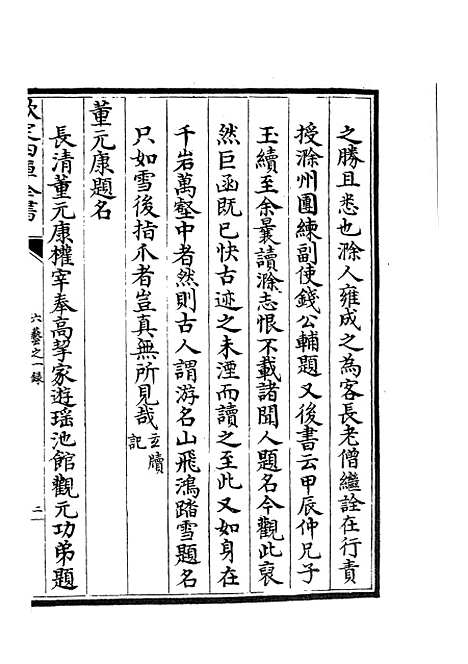 之勝且悉也滁人雍成之為客長老僧繼詮在行責
授滁州團練副使錢公輔題又後書云甲辰仲兄子
玉續至余曩讀滁志恨不載諸聞人題名今觀此裒
然巨函既已快古迹之未湮而讀之至此又如身在
千岩萬壑中者然則古人謂游名山飛鴻踏雪題名
只如雪後指爪者豈真無所見哉玄牘
記
董元康題名
長清董元康權宰奉高挈家遊瑶池館觀元功弟題
欽定四庫全書
六藝之一錄
二